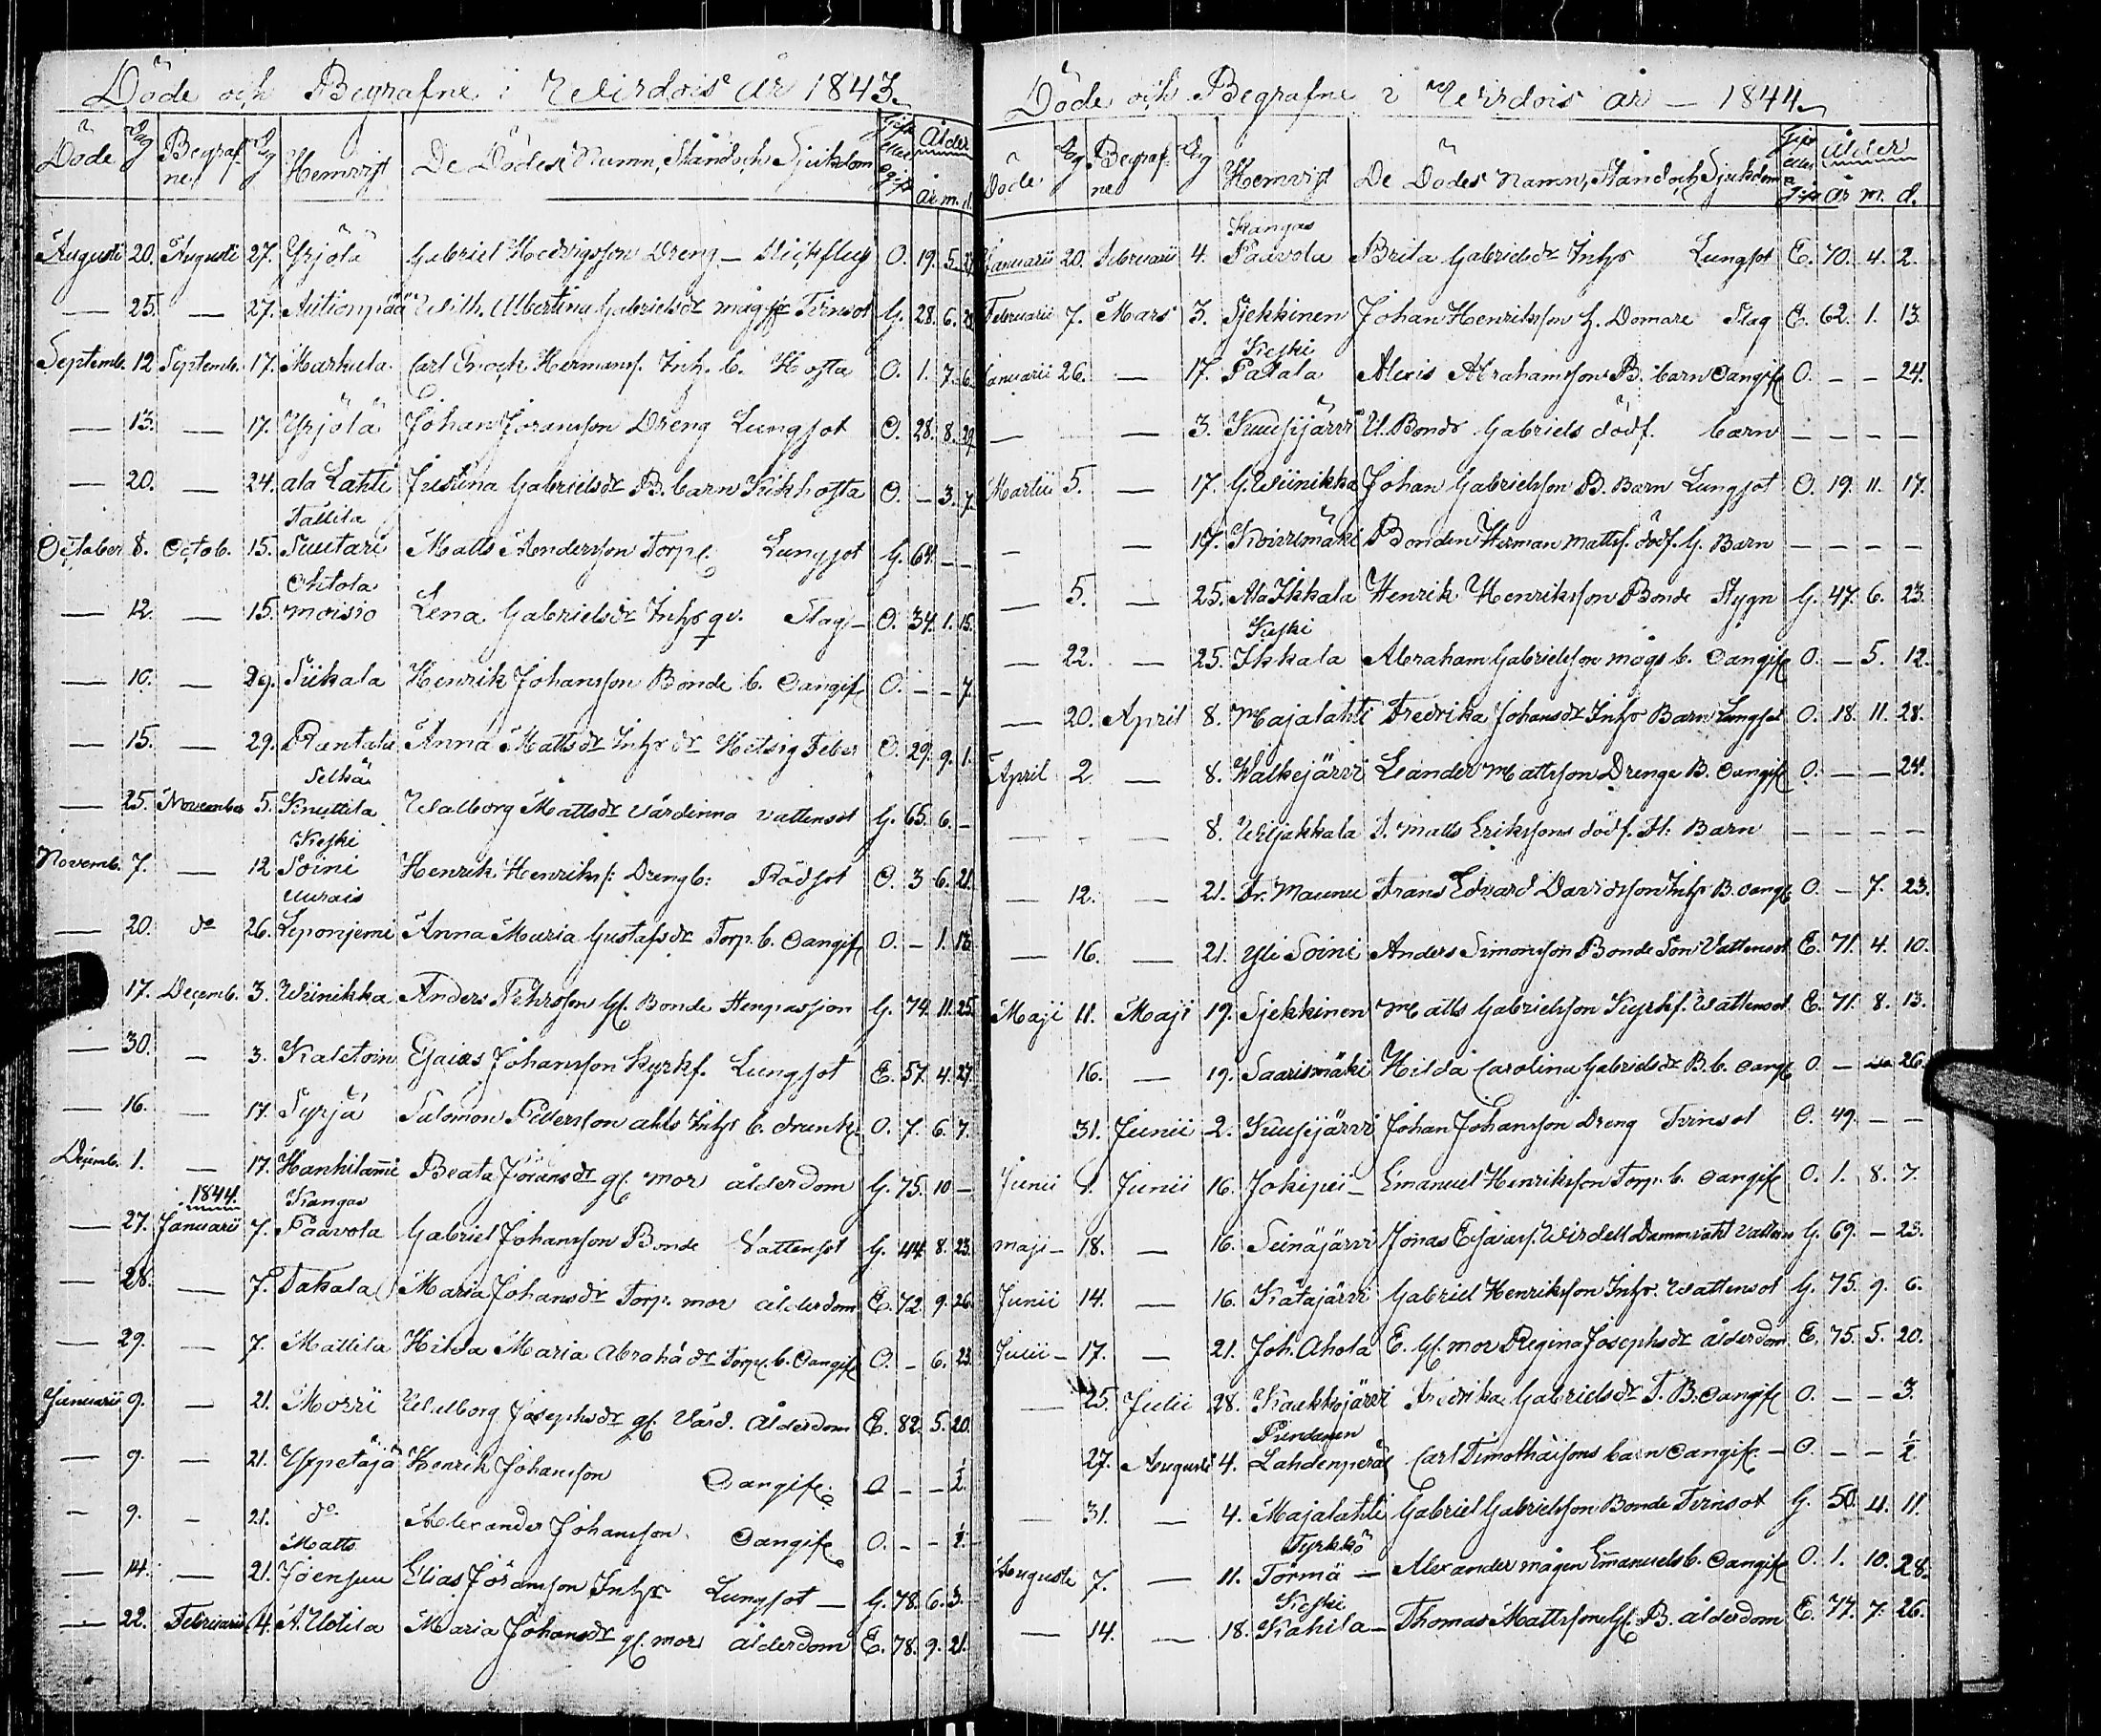 Döde och Begrafne i Wirdois år 1843
Döde Dag Begrafne Dag Hemvist De Dödes Namn, Stånd och Sjukdom Gift eller Ogift Ålder år m. d.
Augusti 20. Augusti 27. Yrjölä Gabriel Hedvigsson Dreng O. 19. 5.
— 25. — 27. Autionpää Wilh. Albertina Gabrielsdr Tvinsot G. 28. 6. 28
Septemb. 12 Septemb. 17. Markula Carl Enoch Hermans. Inh. b. Hosta O. 1. 7. 6.
— 13. — 17. Yrjölä Johan Joransson Dreng Lungsot O. 28. 8. 29
— 20. — 24. ala Lahti Justina Gabrielsdr B. barn Kikhosta O. — 3. 7.
Tallila
October 8. Octob. 15. Suutari Matts Andersson Torp. Lungsot G. 64. — —
Ohtola
— 12. — 15. moisio Lena Gabrielsdr Inhs qv. Slag — O. 34. 1. 15.
— 10. — 29. Siikala Henrik Johansson Bonde b. Oangif. O. — — 7.
— 15. — 29. Rantala Anna Mattsdr Inhs dr Hetsig Feber O. 29. 9. 1.
Selkä
— 25. November 5. Knuttila Walborg Mattsdr Värdinna vattensot G. 65. 6. —
Keski
Novemb. 7. — 12 Soini Henrik Henriks: Dreng b: Rödsot O. 3 6. 21.
Uurais
— 20. do 26. Leponjemi Anna Maria Gustafsdr Torp. b. Oangif. O. — 1. 18
17. Decemb. 3. Wiinikka Anders Gl. Bonde G. 74. 11. 25.
— 30. — 3. Kaletoin Esaias Johansson Kyrkf. Lungsot E. 57. 4. 27.
— 16. — 17. Syrjä Salomon Pettersson Inhs b. drunk. O. 7. 6. 7.
Decemb. 1. — 17. Hanhilami Beata Jöransdr gl. mor ålderdom G. 75. 10 —
1844. Kangas
— 27. Januarii 7. Paavola Gabriel Johansson Bonde Vattensot G. 44. 8. 23.
— 28. — 7. Takala Maria Johansdr Torp. mor ålderdom E. 72. 9. 26
— 29. — 7. Mattila Hilda Maria Abrahådr Torp. b. Oangif. O. — 6. 23.
Januarii 9. — 21. Morri Walborg Josephsdr gl. Värd. Ålderdom E. 82. 5. 20.
— 9. — 21. Yspetäjä Henrik Johansson Oangif. O — — ½
— 9. — 21. do. Alexander Johansson Oangif. O. — — ½
Matts
— 14. — 21. Joensuu Elias Jöransson Inhs Lungsot — G. 78. 6. 3.
— 22. Februarii 4. A. Uotila Maria Johansdr gl. mor ålderdom E. 78. 9. 21.
Döde och Begrafne i Wirdois år — 1844
Döde Dag Begrafne Dag Hemvist De Dödes Namn, Stånd och Sjukdom Gift eller ogift Ålder år m. d.
Kangas
Januarii 20. Februarii 4. Paavola Brita Gabrielsdr Inhs Lungsot E. 70. 4. 2.
Februarii 7. Mars 3. Sjekkinen Johan Henriksson h. Domare Slag E. 62. 1. 13.
Keski
Januarii 26. — 17. Patala Alexis Abrahamsson B. barn Oangif O. — — 24.
— — 3. Kuusijärvi U. Bonds Gabriels dödf. barn — — — —
Martii 5. — 17. G. Wiinikka Johan Gabrielsson B. Barn Lungsot O. 19. 11. 17.
— — 17. Koivumäki Bonden Herman Matts. dödf. G. Barn — — — —
— 5. — 25. Ala Ikkala Henrik Henriksson Bonde Stygn G. 47. 6. 23.
Keski
— 22. — 25. Ikkala Abraham Gabrielsson mågs b. Oangif O. — 5. 12.
— 20. April 8. Majalahti Fredrika Johansdr Inhs Barn Lungsot O. 18. 11. 28.
April 2. — 8. Walkejärvi Leander Mattsson Drengs B. Oangif O. — — 24.
— — 8. Wiljakkala Matts Erikssons dödf. Barn — — — —
— 12. — 21. Maunu Frans Edvard Davidsson Inhs B. Oangif O. — 7. 23.
— 16. — 21. Yli Soini Anders Simonsson Bonde Son Vattensot E. 71. 4. 10.
Maji 11. Maji 19. Sjekkinen Matts Gabrielsson Kyrkf. Wattensot E. 71. 8. 13.
16. — 19. Saarismäki Hilda Carolina Gabrielsdr B. b. Oangif O. — — 26
31. Junii 2. Kuusijärvi Johan Johansson Dreng Tvinsot O. 49. — —
Junii 1. Junii 16. Jokipii — Emanuel Henriksson Torp. b. Oangif O. 1. 8. 7.
Maji — 18. — 16. Seinäjärvi Jonas Esaias. Wirdell Dammvakt G. 69. — 23.
Junii 14. — 16. Katajärvi Gabriel Henriksson Inhs. Wattensot G. 75. 9. 6.
Julii — 17. — 21. Joh. Ahola E. Gl. mor Regina Josephsdr ålderdom E. 75. 5. 20.
— 25. Julii 28. Kaukkojärvi Fredrika Gabrielsdr T. B. Oangif O. — — 3.
27. Augusti 4. Lahdenperä Carl Timothäisons barn Oangif. — O. — — ½
— 31. — 4. Majalahti Gabriel Gabrielsson Bonde Tvinsot G. 50. 4. 11.
Pyrkkö
Augusti 7. — 11. Törmä — Alexander mågen Emanuels b. Oangif O. 1. 10. 28.
Keski
— 14. — 18. Kahila — Thomas Mattsson Gl. B. ålderdom E. 77. 7. 26.